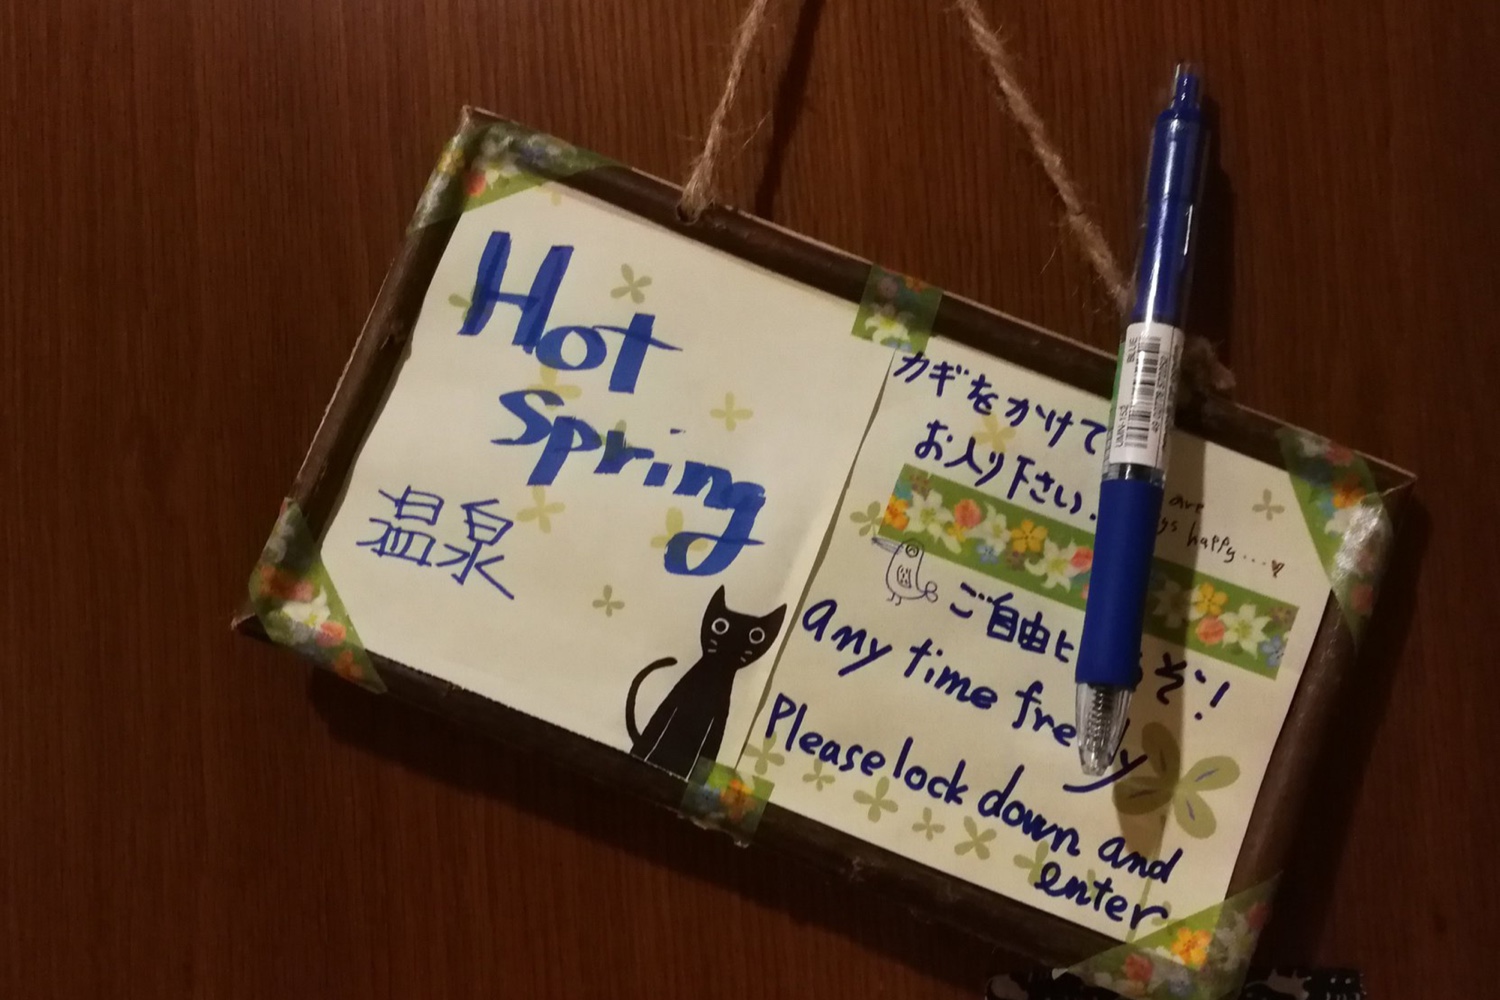 Hot
Spring
温泉
カギをかけて
お入り下さい.
are
happy...♥
ご自由に そ!
any time freely
Please lock down and
enter
BLUE
UMN-152